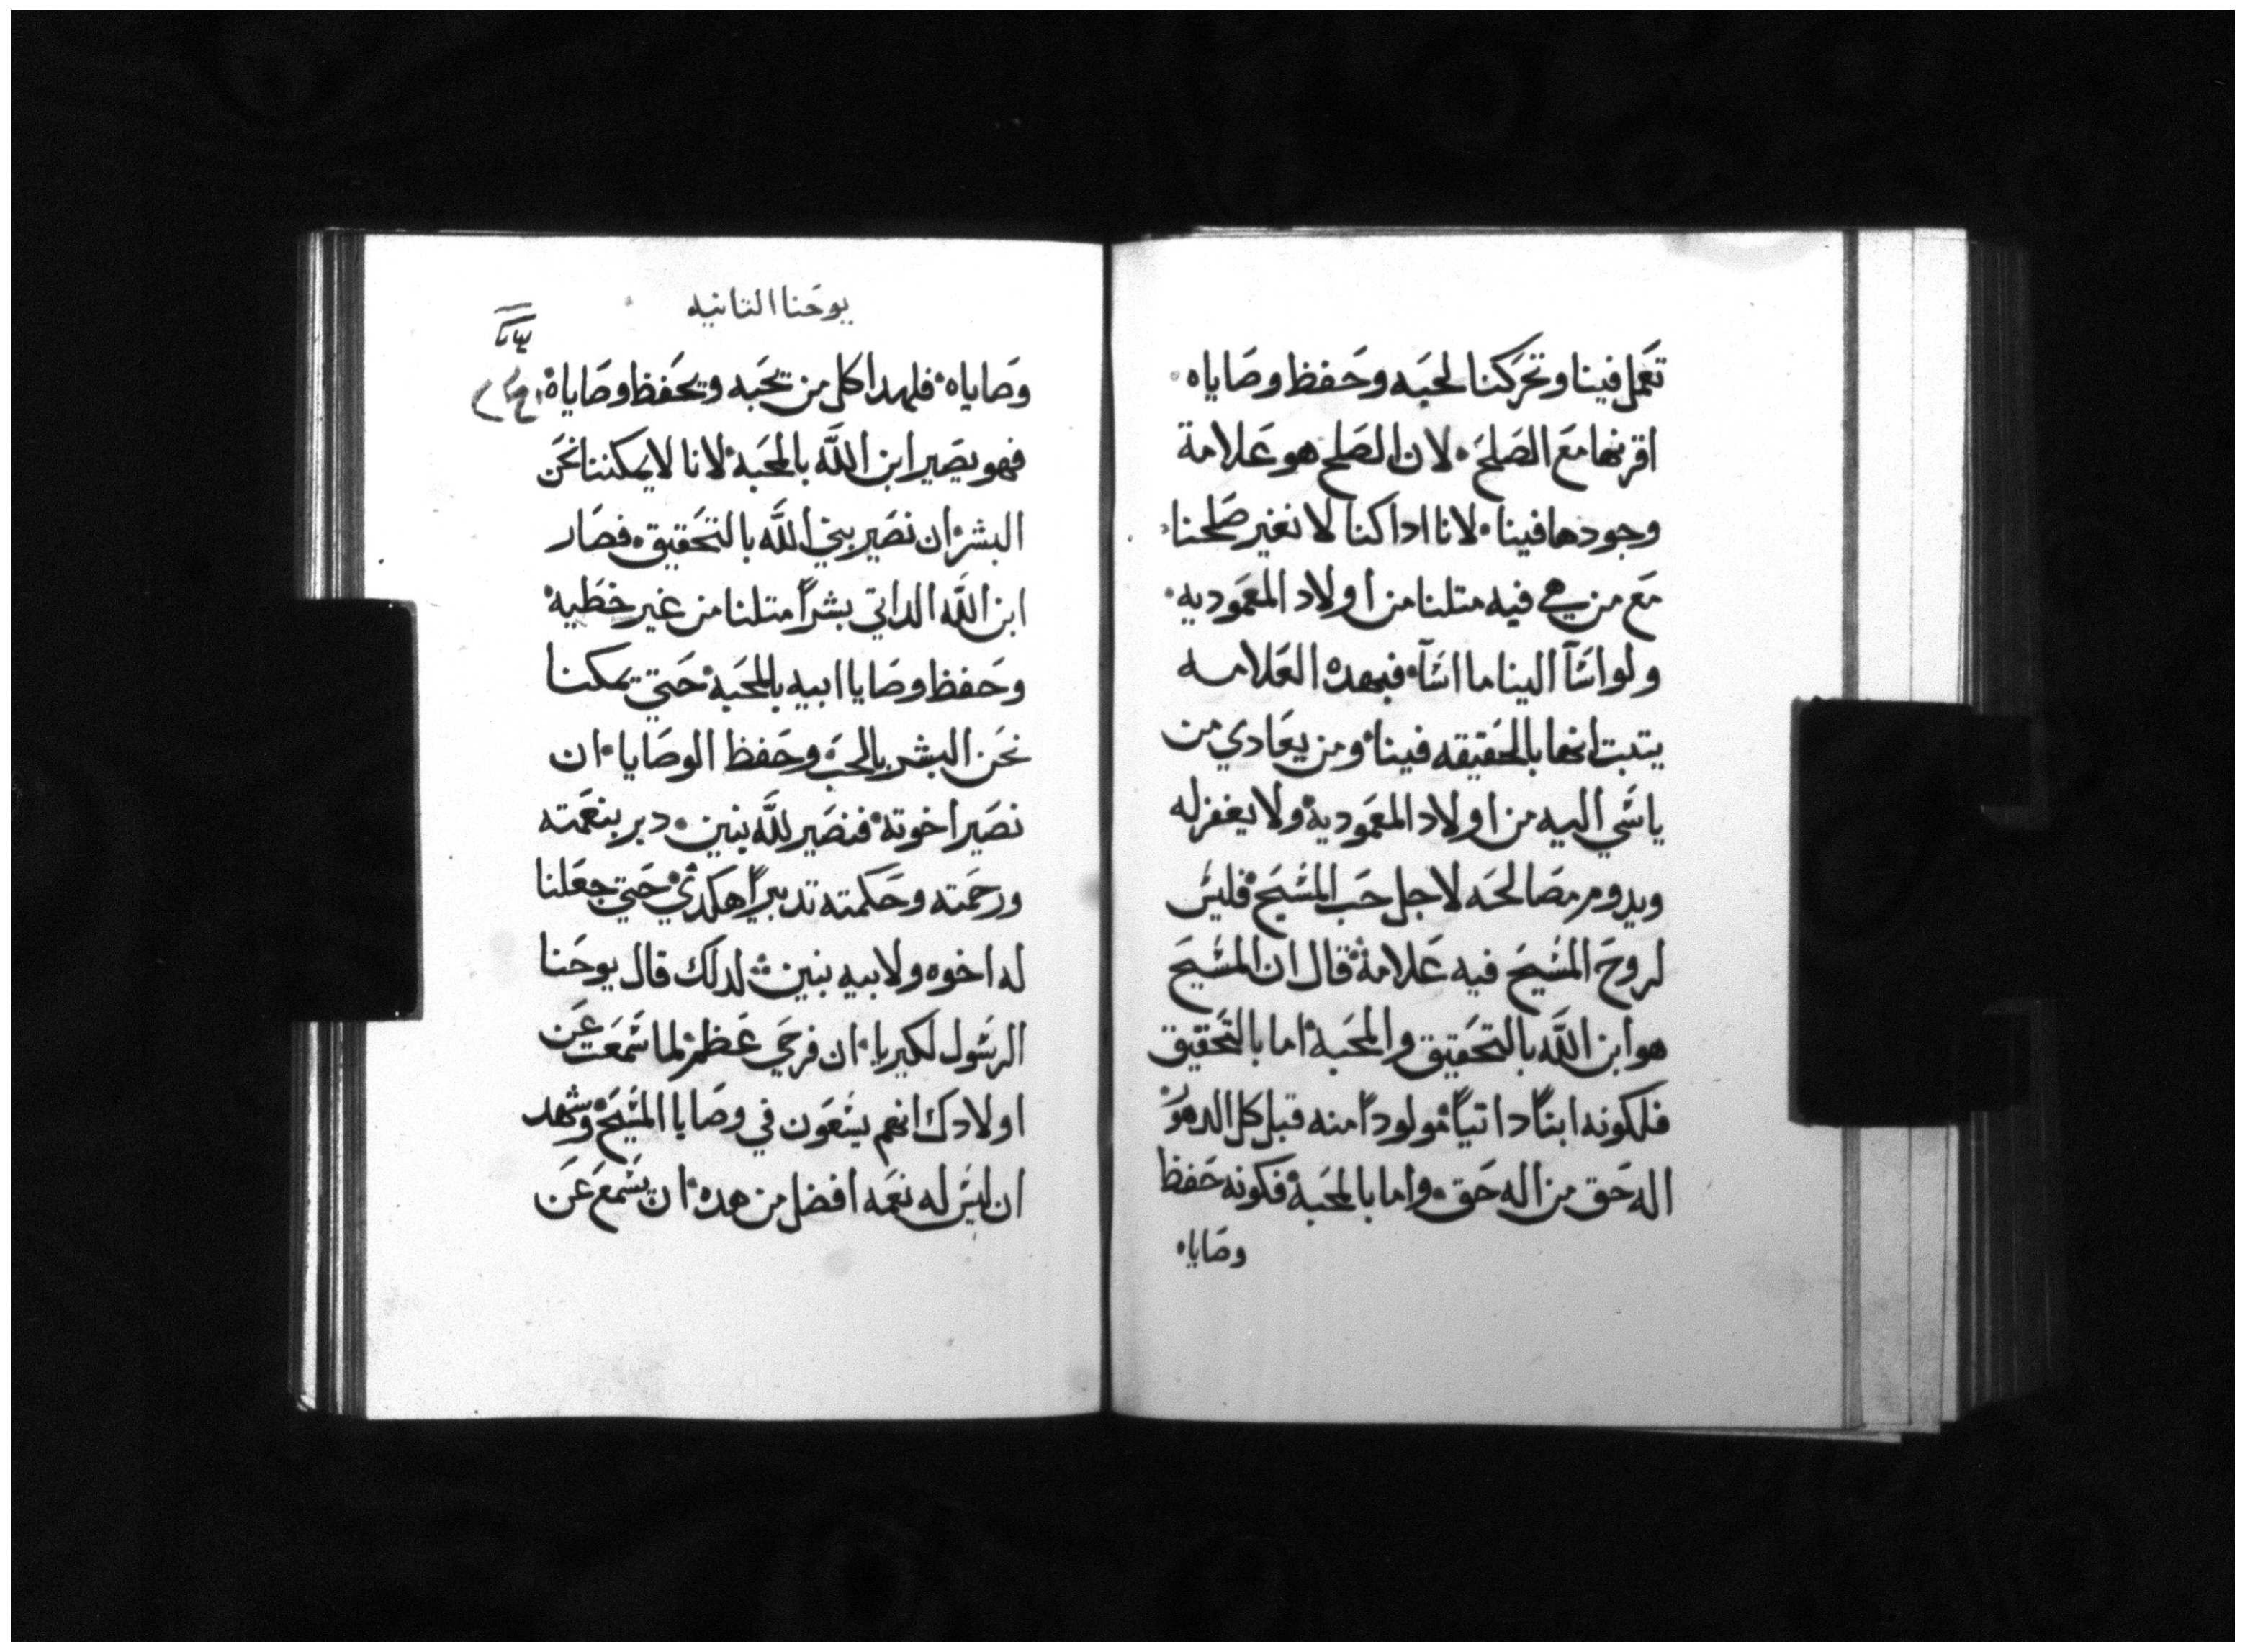 تعمل فينا وتحركنا لحبه وحفظ وصاياه
اقرنها مع الصلح لان الصلح هو علامة
وجودها فينا لانا اداكنا لا نغير صلحنا
مع من هي فيه متلنا من اولاد المعموديه
ولو اسَآ الينا ما اسَآ فبهده العلامه
يتبت انها بالحقيقه فينا ومن يعادي من
ياسي اليه من اولاد المعمودية ولا يغفر له
ويدوم مصالحه لاجل حب المسيح فليس
لروح المسيح فيه علامة قال ان المسيح
هو ابن الله بالتحقيق والمحبة اما بالتحقيق
فلكونه ابناً داتياً مولوداً منه قبل كل الدهور
اله حق من اله حق واما بالمحبة فكونه حفظ
وصاياه
يوحنا التانيه
وصاياه فلهدا كل من يحبه ويحفظ وصاياه
فهو يصير ابن الله بالمحبة لانا لا يمكننا نحن
البشر ان نصير بني الله بالتحقيق فصار
ابن الله الداتي بشراً متلنا من غير خطيه
وحفظ وصايا ابيه بالمحبة حتي يمكننا
نحن البشر بالحب وحفظ الوصايا ان
نصير اخوته فنصير لله بنين دبر بنعمته
ورحمته وحكمته تدبيراً هكدي حتي جعلنا
له اخوه ولابيه بنين لدلك قال يوحنا
الرسول لكيريا ان فرحي عظم لما سمعت عن
اولادك انهم يسعون في وصايا المسيح وشهد
ان ليس له نعمه افضل من هده ان يسمع عن